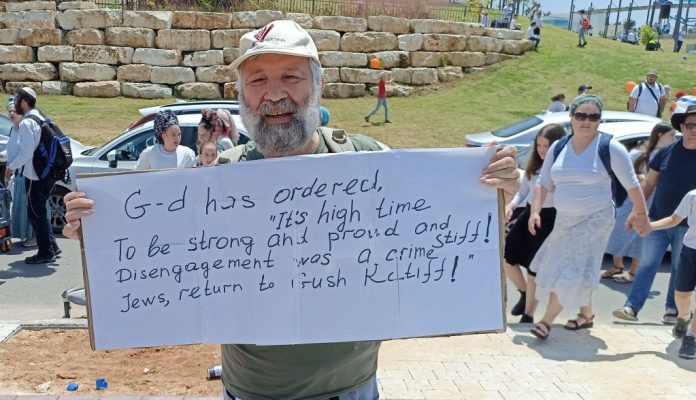 G-d has ordered,
"It's high time
To be strong and proud and stiff!
Disengagement was a crime
Jews, return to Gush Katiff!"